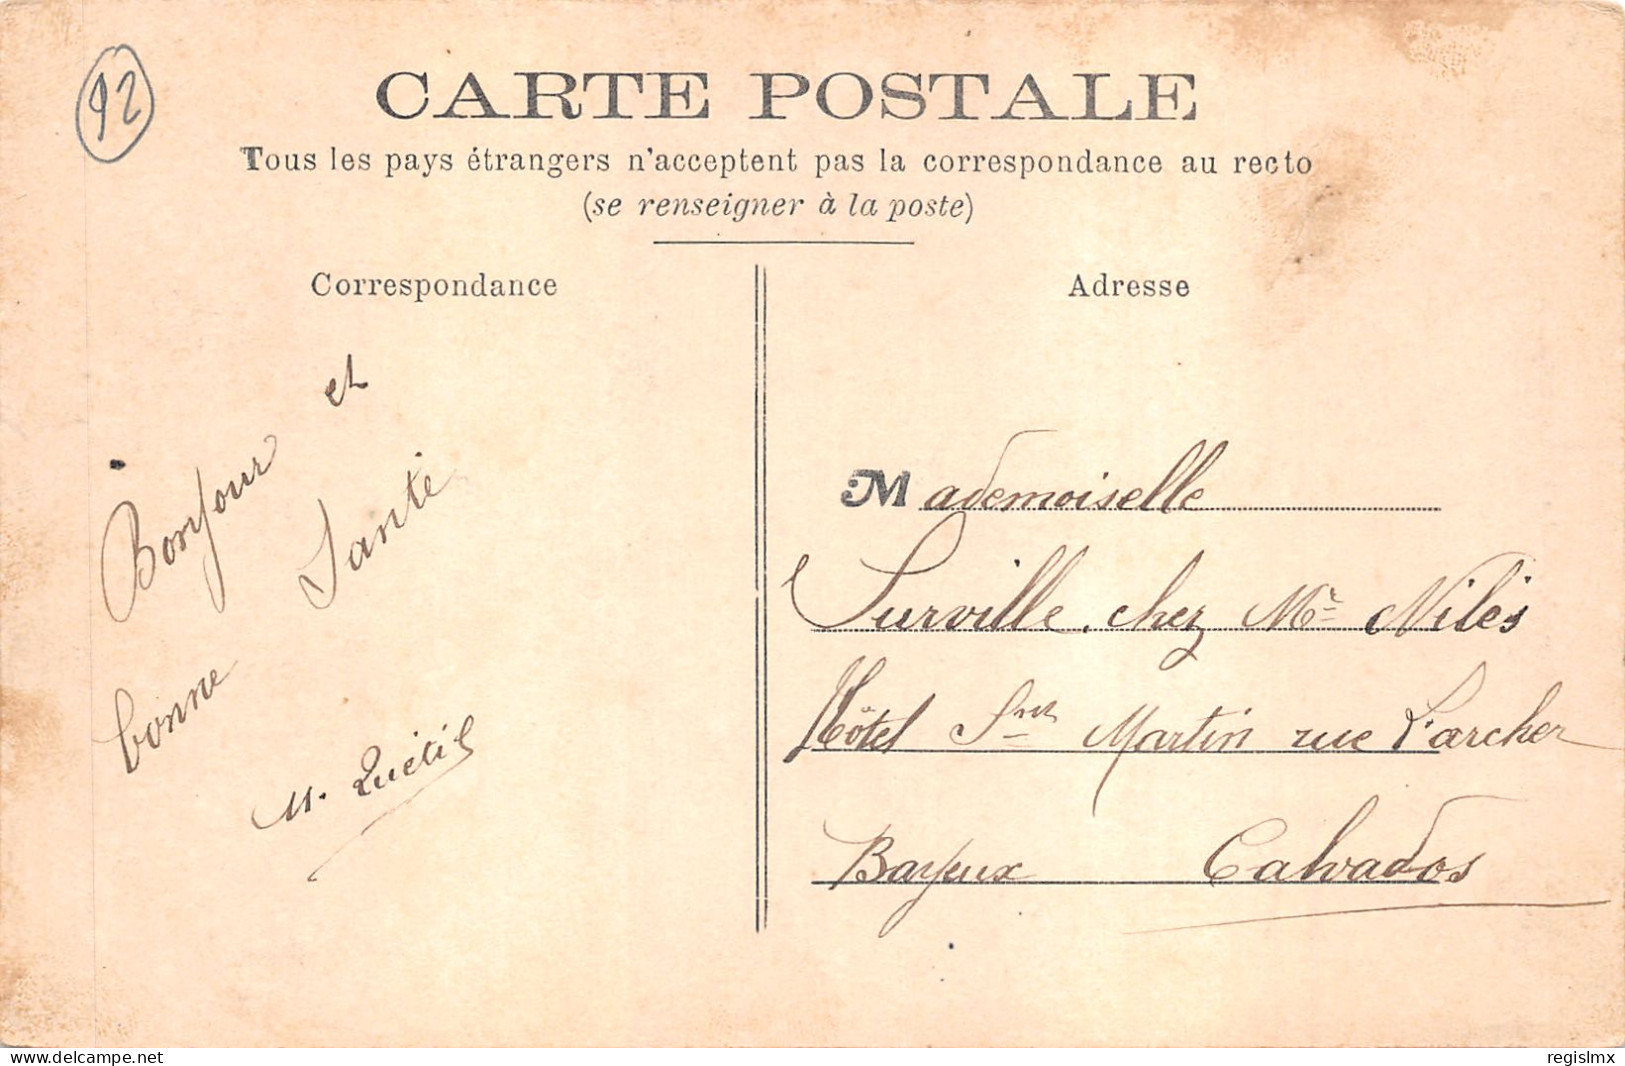 92
CARTE POSTALE
Tous les pays étrangers n'acceptent pas la correspondance au recto
(se renseigner à la poste)
Correspondance
Bonjour et
bonne Santé
M.
Adresse
Mademoiselle
Surville. chez Mr
Hôtel St Martin rue Larcher
Bayeux Calvados
www.delcampe.net
regislmx